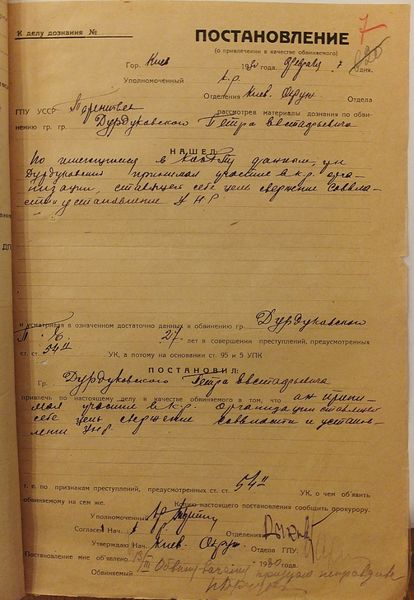 7
К делу дознания №
ПОСТАНОВЛЕНИЕ
(о привлечении в качестве обвиняемого)
Гор. Киев 1930 года, февраля 7 дня.
Уполномоченный к.р.
Отделения Киев. Окруж Отдела
ГПУ УССР рассмотрев материалы дознания по обви-
нению гр. гр. Дурдуковского Петра Евстафьевича
НАШЕЛ:
По имеющимся в данным, гр
Дурдуковский принимал участие в к.р. орга-
низации, ставящей себе цель свержение соввла-
сти и установление УНР
и усматривая в означенном достаточно данных к обвинению гр. Дурдуковского
П. Е. 27 лет в совершении преступлений, предусмотренных
ст. ст. 54-11 УК, а потому на основании ст. 95 и 5 УПК
ПОСТАНОВИЛ:
Гр. Дурдуковского Петра Евстафьевича
привлечь по настоящему делу в качестве обвиняемого в том, что он прини-
мал участие в к.р. организации ставящей
себе цель свержение соввласти и установ-
лении УНР
т. е. по признакам преступлений, предусмотренных ст. ст. 54-11 УК, о чем об'явить
обвиняемому на сем же. Копию настоящего постановления сообщить прокурору.
Уполномоченный
Согласен: Нач. Отделения
Утверждаю: Нач. Киев. Окруж Отдела ГПУ:
Постановление мне об'явлено 13/III 1930 г.
Обвиняемый